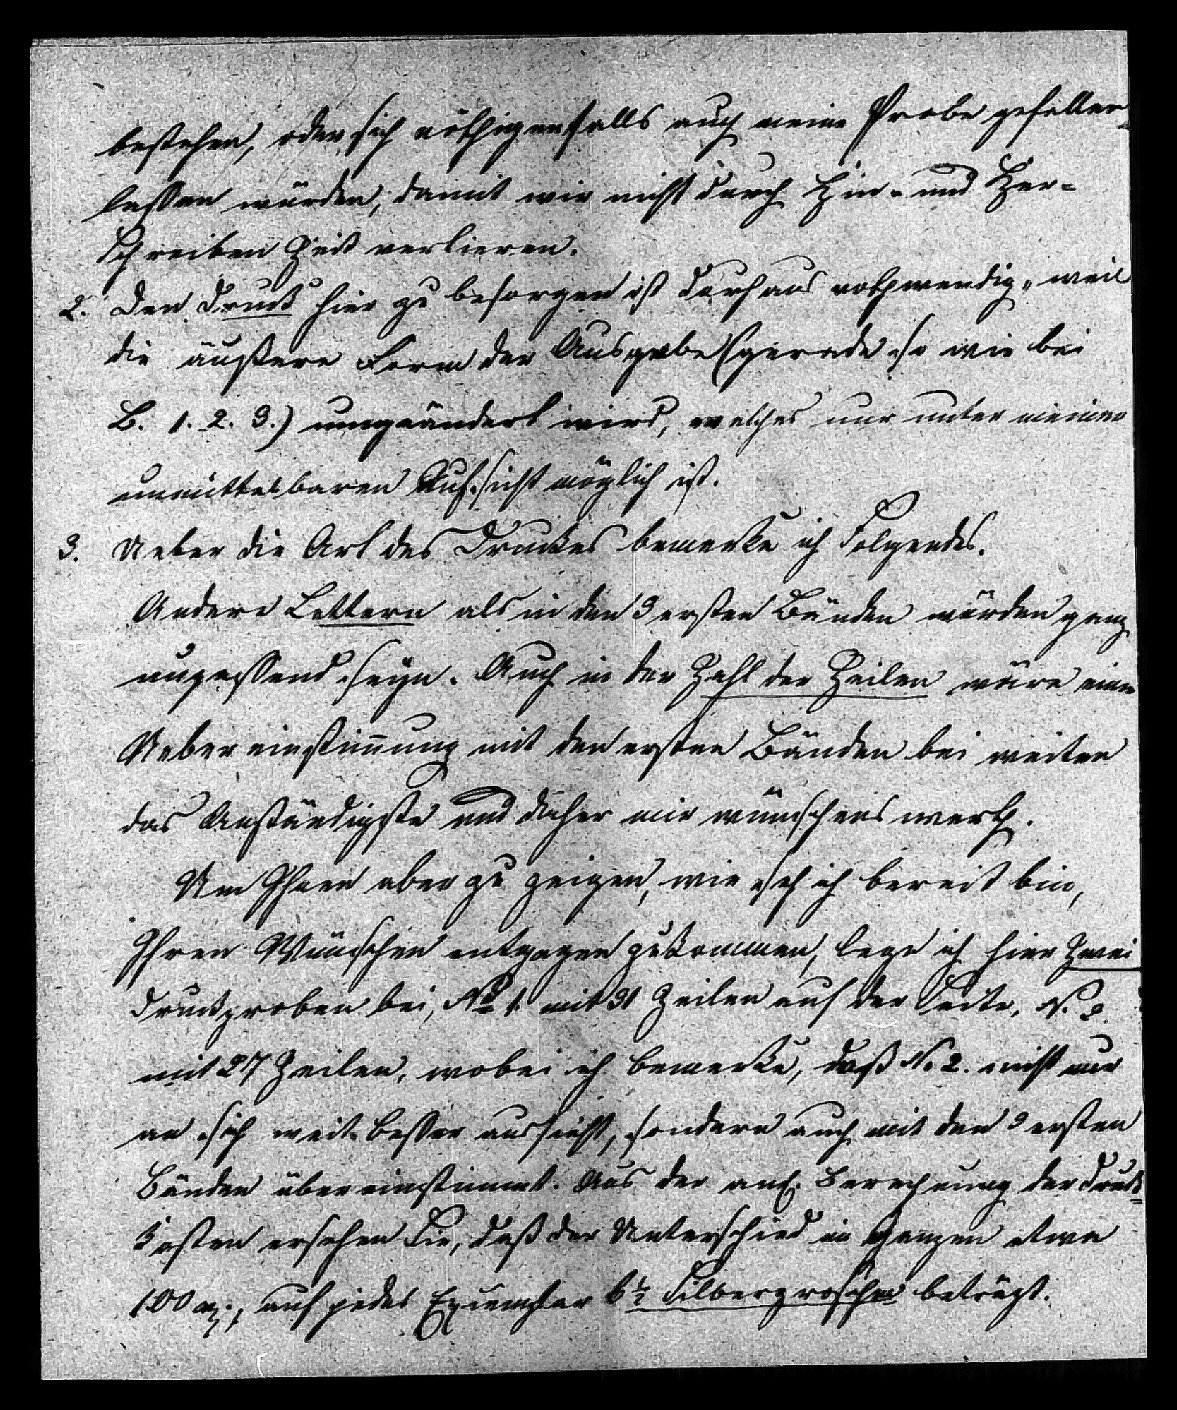 bestehen, oder sich nöthigenfalls auch meine Probe gefallen
lassen würden, damit wir nicht durch Hin- und Her-
schreiben Zeit verlieren.
2. Den Druck hier zu besorgen ist durchaus nothwendig, weil
die äußere Form der Ausgabe (gerade so wie bei
B. 1. 2. 3.) umgeändert wird, welches nur unter meiner
unmittelbaren Aufsicht möglich ist.
3. Ueber die Art des Druckes bemerke ich Folgendes.
Andere Lettern als in den 3 ersten Bänden würden ganz
unpassend seyn. Auch in der Zahl der Zeilen wäre eine
Uebereinstimmung mit den ersten Bänden bei weitem
das Anständigste und daher mir wünschenswerth.
Um Ihnen aber zu zeigen, wie sehr ich bereit bin,
Ihren Wünschen entgegen zu kommen, lege ich hier zwei
Druckproben bei, No 1. mit 31 Zeilen auf der Seite, N. 2.
mit 27 Zeilen, wobei ich bemerke, daß N. 2. nicht nur
an sich weit besser aussieht, sondern auch mit den 3 ersten
Bänden übereinstimmt. Aus der anl. Berechnung der Druck-
kosten ersehen Sie, daß der Unterschied im Ganzen etwa
100 auf jedes Exemplar 6½ Silbergroschen beträgt.